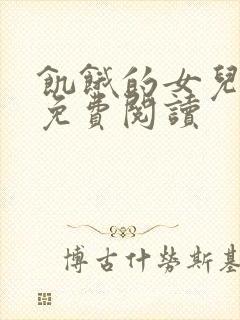 飢餓的女兒
免費閱讀
博古什勞斯基